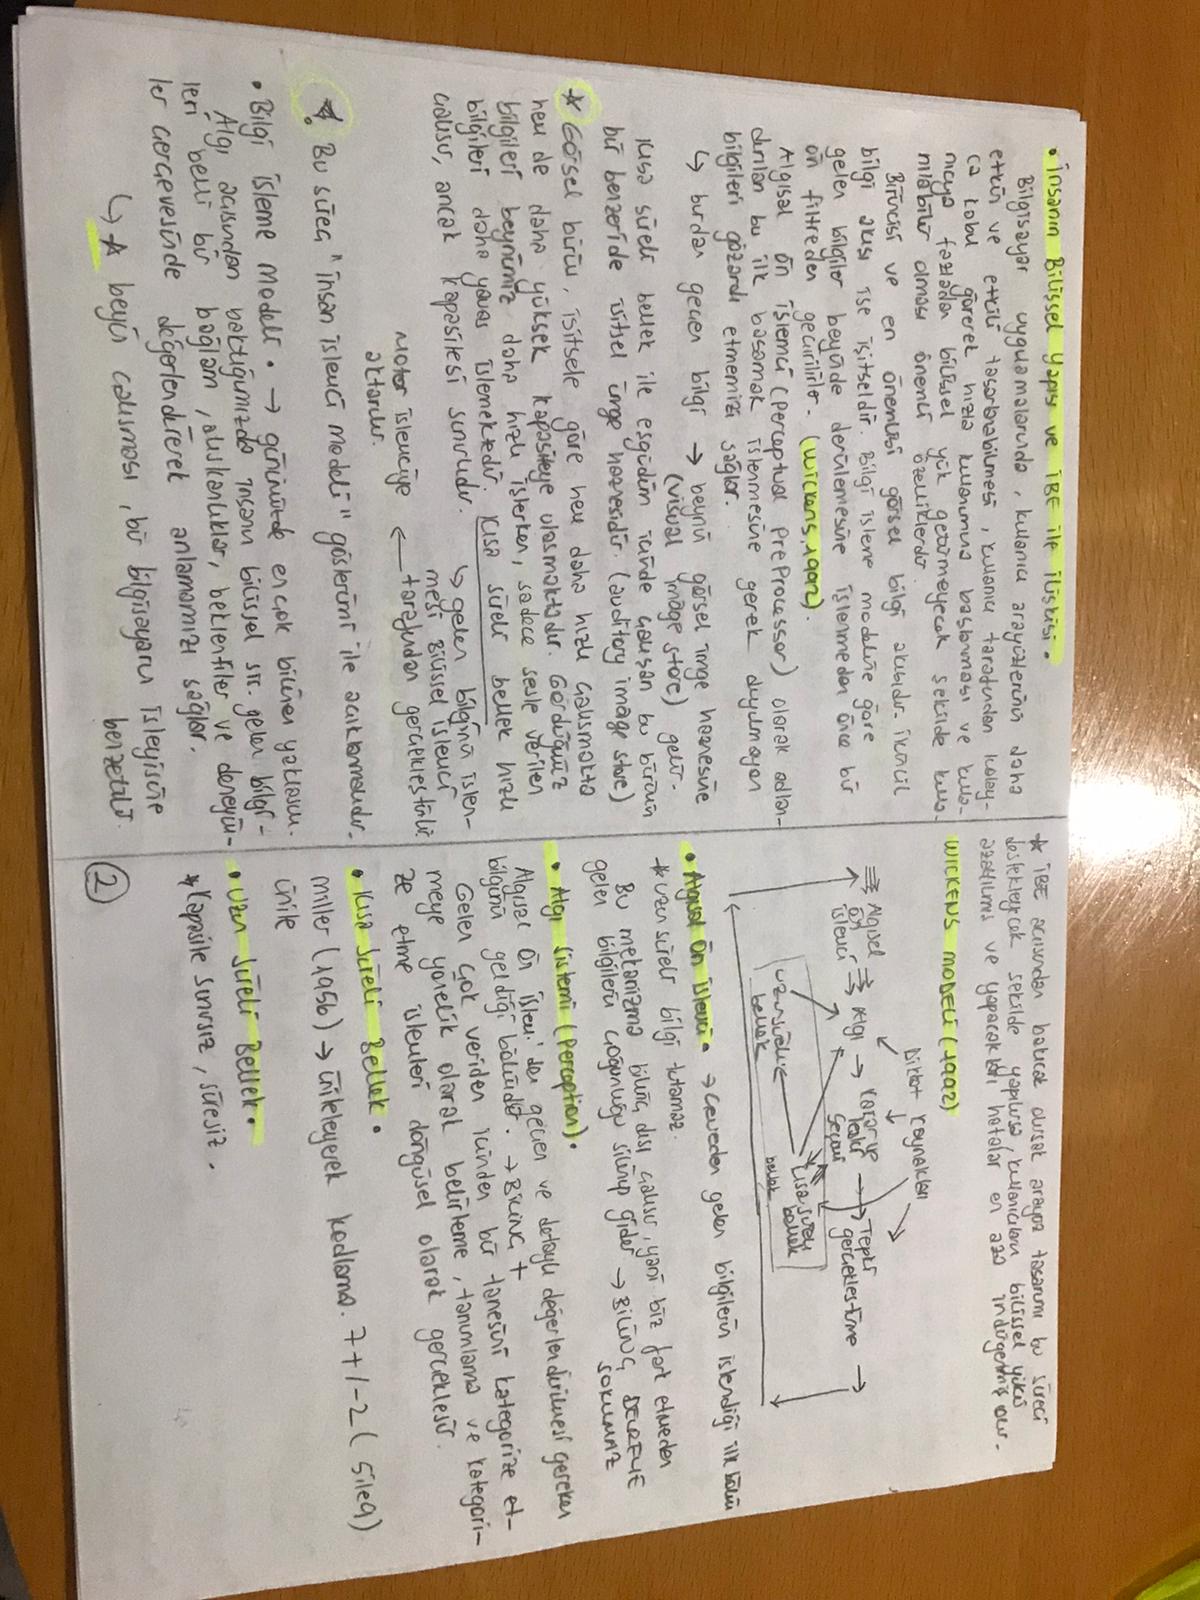 • İnsanın Bilişsel Yapısı ve İBE ile ilişkisi.
Bilgisayar uygulamalarında, kullanıcı arayüzlerinin daha
etkin ve etkili tasarlanabilmesi, kullanıcı tarafından kolay-
ca kabul görerek hızla kullanımına başlanması ve kulla-
nıcıya fazladan bilişsel yük getirmeyecek şekilde kulla-
nılabilir olması önemli özelliklerdir.
Birincisi ve en önemlisi görsel bilgi akışıdır. ikincil
bilgi akışı ise işitseldir. Bilgi işleme modeline göre
gelen bilgiler beyinde derinlemesine işlenmeden önce bir
ön filtreden geçirilirler. (Wickens, 1992).
Algısal ön işlemci (Perceptual PreProcessor) olarak adlan-
dırılan bu ilk basamak işlenmesine gerek duyulmayan
bilgileri gözardı etmemizi sağlar.
↳ burdan geçen bilgi → beynin görsel imge haznesine
(visual image store) gelir.
Kısa süreli bellek ile eşgüdüm içinde çalışan bu birimin
bir benzeride işitsel imge haznesidir. (auditory image store)
☆ Görsel birim, işitsele göre hem daha hızlı çalışmakta
hem de daha yüksek kapasiteye ulaşmaktadır. Gördüğümüz
bilgileri beynimiz daha hızlı işlerken, sadece sesle verilen
bilgileri daha yavaş işlemektedir. Kısa süreli bellek hızlı
çalışır, ancak kapasitesi sınırlıdır.
↳ gelen bilginin işlen-
mesi Bilişsel işlemci
tarafından gerçekleştirilir.
← Motor işlemciye
aktarılır.
Bu süreç "insan işlemci modeli" gösterimi ile açıklanmalıdır.
• Bilgi işleme modeli. → günümüzde en çok bilinen yaklaşım.
Algı açısından baktığımızda insanın bilişsel sis. gelen bilgi-
leri belli bir bağlam, alışkanlıklar, beklentiler ve deneyim-
ler çerçevesinde değerlendirerek anlamamızı sağlar.
↳ ☆ beyin çalışması, bir bilgisayarın işleyişine
benzetilir.
☆ İBE açısından bakıcak olursak arayüz tasarımı bu süreci
destekleyecek şekilde yapılırsa, kullanıcıların bilişsel yükü
azaltılmış ve yapacakları hatalar en aza indirgenmiş olur.
WICKENS MODELİ (1992)
Dikkat kaynakları
Algısal
ön
işlemci
Algı
Karar ve
Tepki
Seçimi
Tepki
gerçekleştirme
Uzun süreli
bellek
Kısa süreli
bellek
bellek
• Algısal Ön işlemci. → Çevreden gelen bilgilerin işlendiği ilk bölüm
* Uzun süreli bilgi tutamaz.
Bu mekanizma bilinç dışı çalışır, yani biz fark etmeden
gelen bilgilerin çoğunluğu silinip gider → BİLİNÇ DEVREYE
SOKULMAZ
• Algı Sistemi (Perception).
Algısal Ön işlem.'den geçen ve detaylı değerlendirilmesi gereken
bilginin geldiği bölümdür. → BİLİNÇ +
Gelen çok veriden içinden bir tanesini kategorize et-
meye yönelik olarak belirleme, tanımlama ve kategori-
ze etme işlemleri döngüsel olarak gerçekleşir.
• Kısa Süreli Bellek.
Miller (1956) → ünikeleyerek kodlama. 7+/-2 (5ile9)
ünile
• Uzun Süreli Bellek.
* Kapasite sınırsız, süresiz.
2